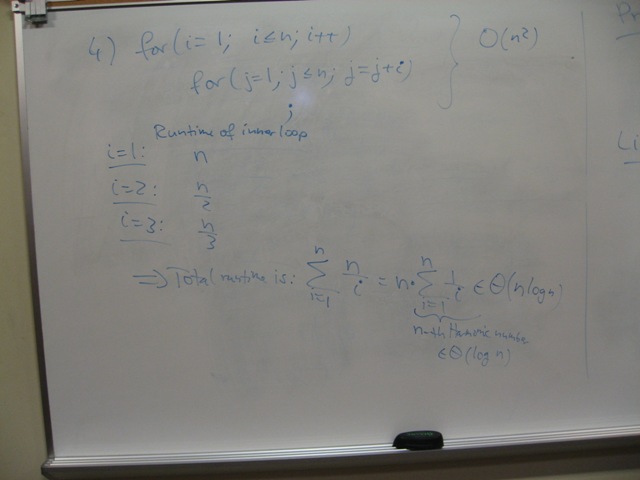 4) for(i=1; i≤n; i++) } O(n²)
for(j=1; j≤n; j=j+i)
;
Runtime of inner loop
i=1: n
i=2: n/2
i=3: n/3
⇒ Total runtime is: ∑_{i=1}^{n} n/i = n·∑_{i=1}^{n} 1/i ∈ Θ(n log n)
n-th Harmonic number
∈ Θ(log n)
Pr
Li